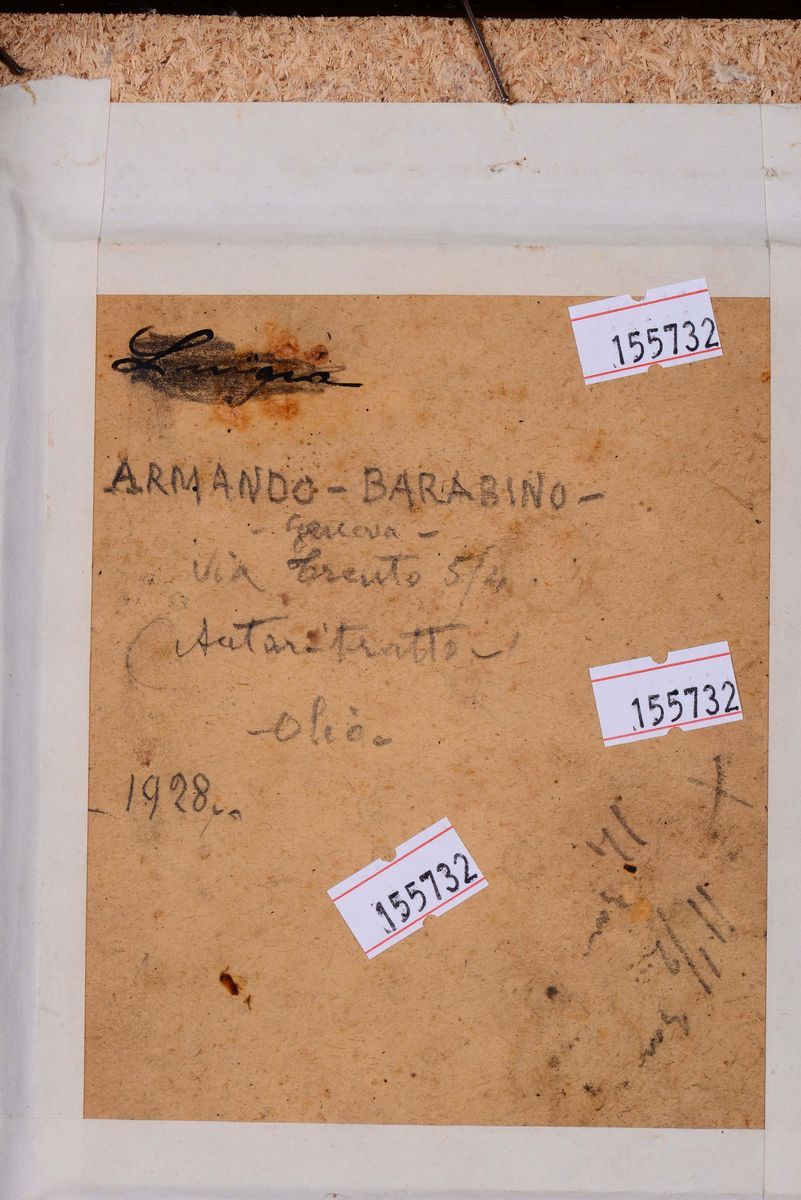 155732
ARMANDO - BARABINO -
- Genova -
Via Trento 5/2
(Autoritratto)
- Olio.
155732
- 1928
155732
X